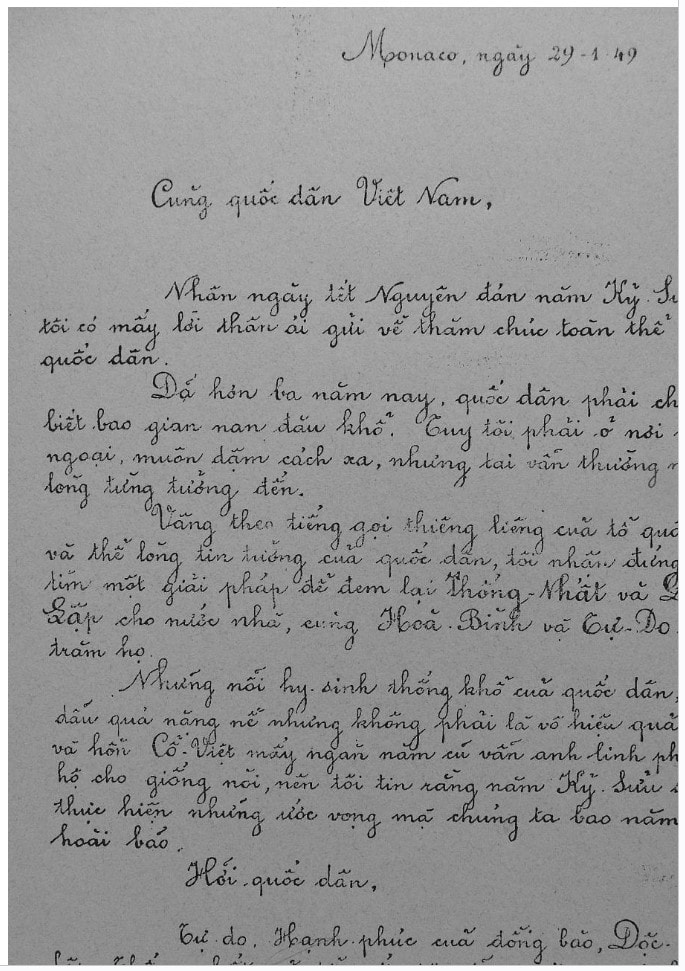 Monaco, ngày 29-1-49
Cùng quốc dân Việt Nam,
Nhân ngày tết Nguyên đán năm Kỷ. Sử
tôi có mấy lời thân ái gửi về thăm chúc toàn thể
quốc dân.
Dã hơn ba năm nay, quốc dân phải ch
biết bao gian nan đau khổ. Tuy tôi phải ở nơi
ngoại, muôn dặm cách xa, nhưng tai vẫn thường
lòng từng tưởng đến.
Vâng theo tiếng gọi thiêng liêng của tổ quố
và thể lòng tin tưởng của quốc dân, tôi nhận đứng
tìm một giải pháp để đem lại Thống-Nhất và
Lập cho nước nhà, cùng Hoà-Bình và Tự-Do
trăm họ.
Nhưng nỗi hy-sinh thống khổ của quốc dân,
dẫu quá nặng nề nhưng không phải là vô hiệu quả
và hồn Cồ-Việt mấy ngàn năm cũ vẫn anh-linh ph
hộ cho giống nòi, nên tôi tin rằng năm Kỷ-Sửu
thực hiện những ước vọng mà chúng ta bao năm
hoài bão.
Hỡi quốc dân,
Tự-do, Hạnh-phúc của đồng bào, Độc-